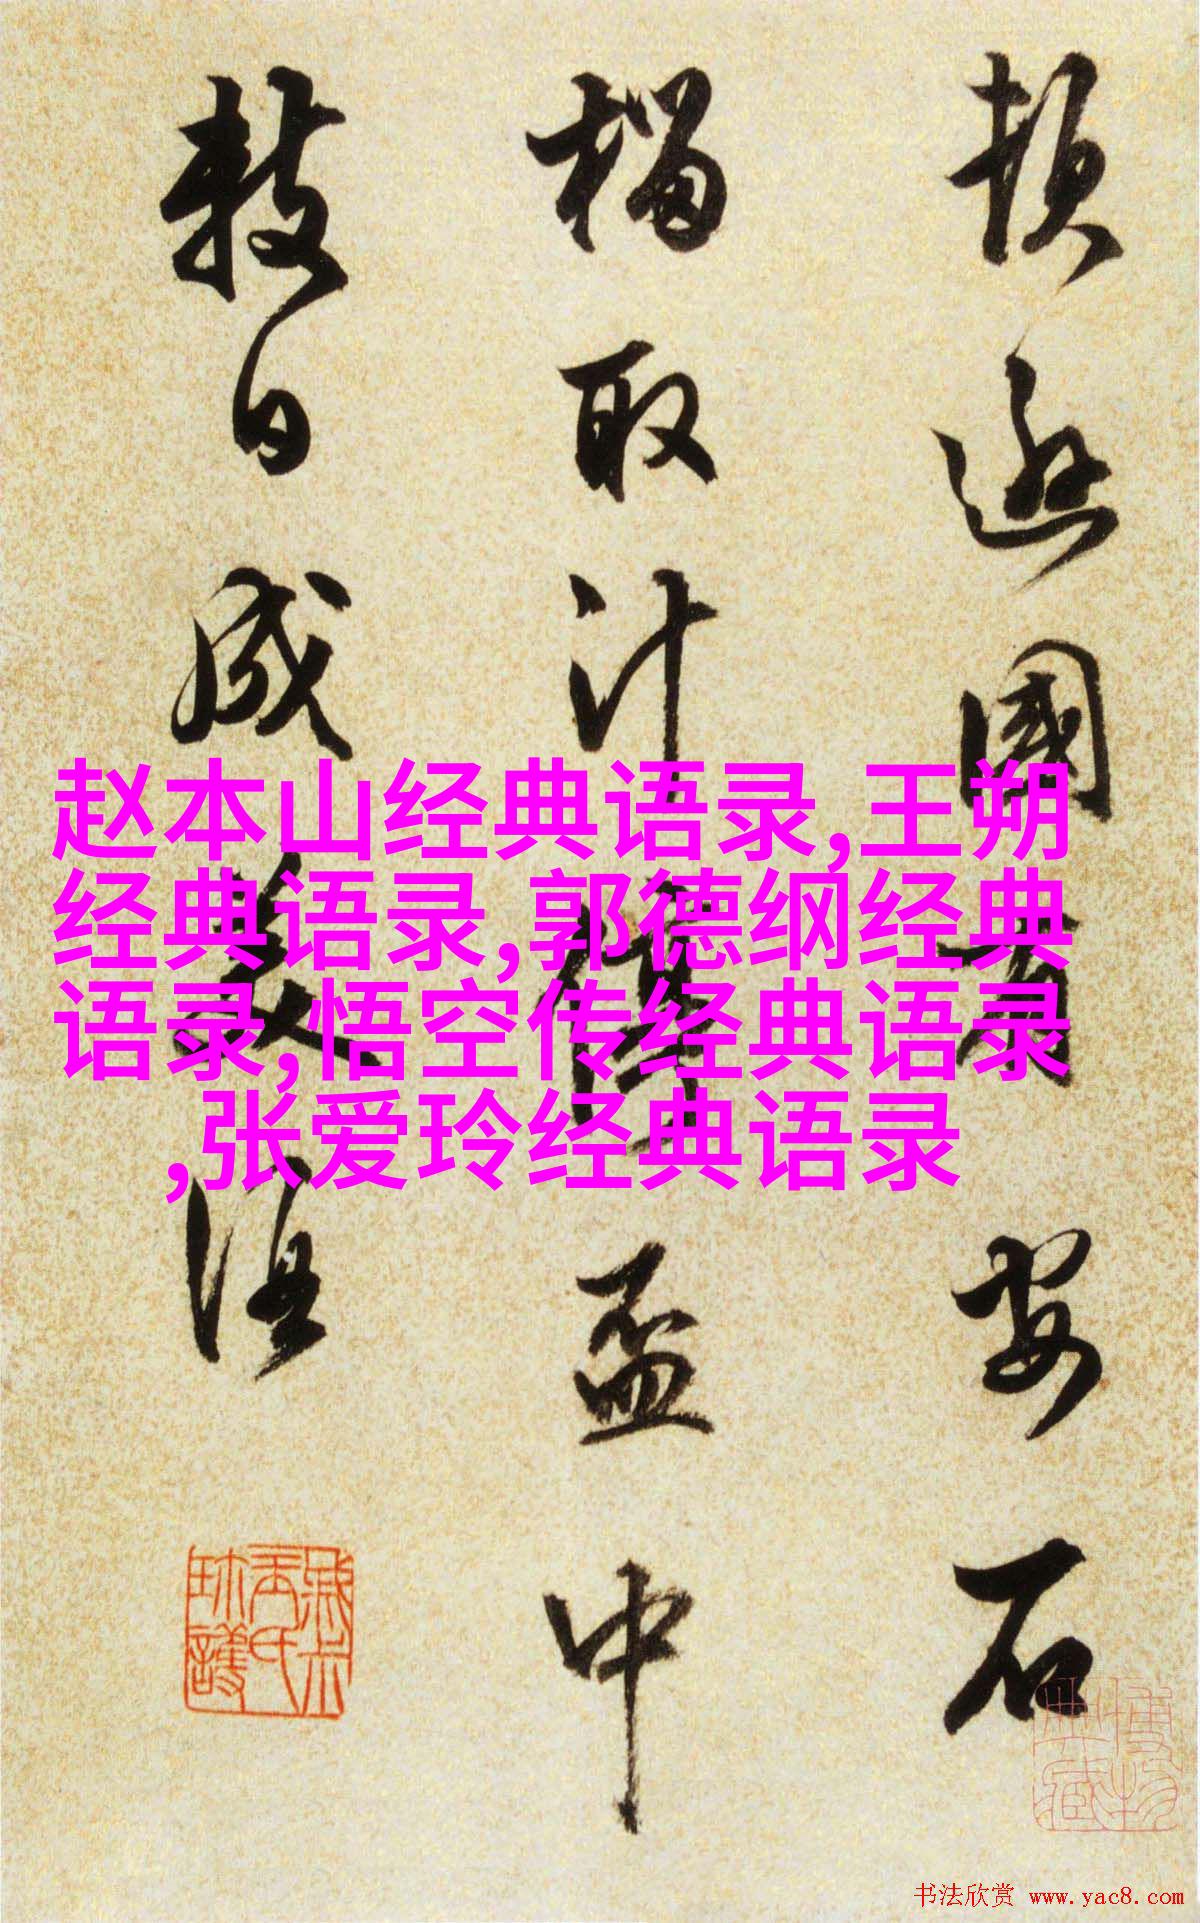 頓遜國有安石
榴取汁停盃中
數日成美酒
赵本山经典语录,王朔
经典语录,郭德纲经典
语录,悟空传经典语录
,张爱玲经典语录
书法欣赏 www.yac8.com